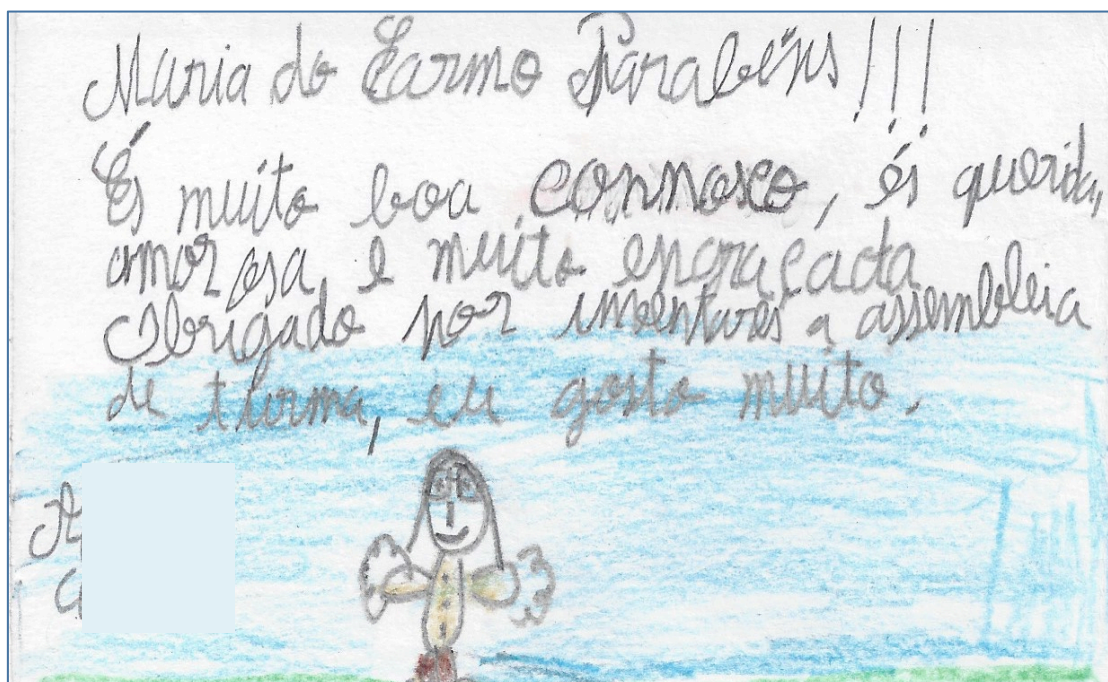 Maria do Carmo Parabéns!!!
És muito boa connosco, és querida,
amorosa e muito engraçada
Obrigado por inventares a assembleia
de turma, eu gosto muito.